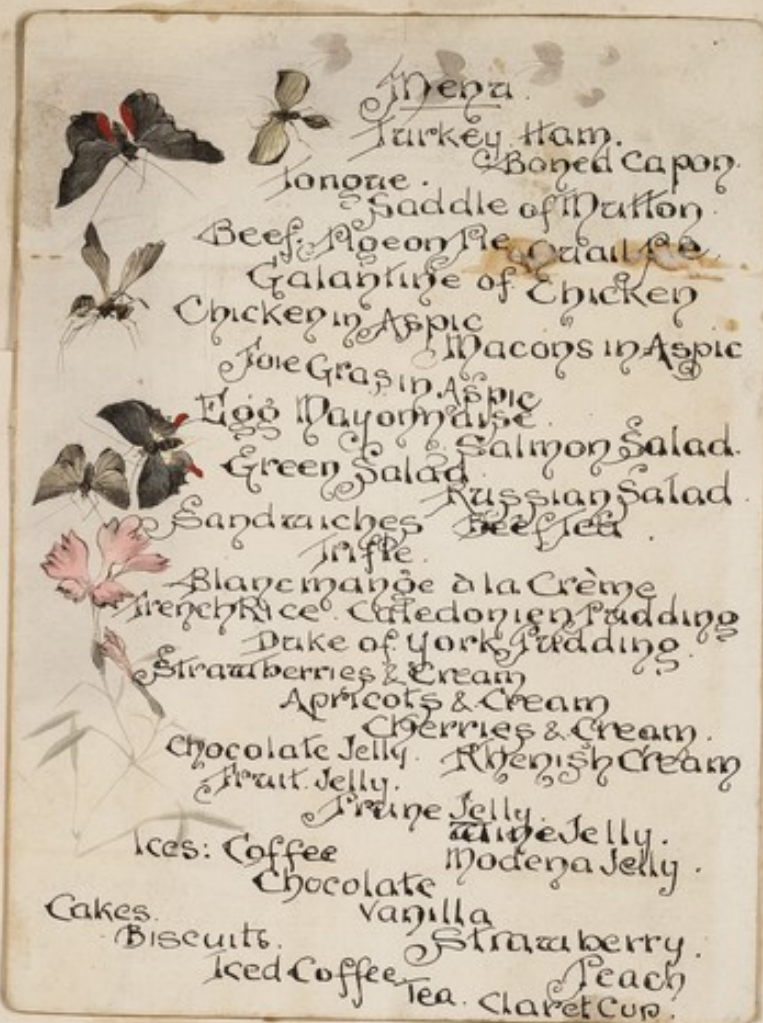 Menu.
Turkey Ham.
Boned Capon.
Tongue.
Saddle of Mutton.
Beef. Pigeon Pie Quail Pie.
Galantine of Chicken
Chicken in Aspic
Macons in Aspic
Foie Gras in Aspic
Egg Mayonnaise.
Salmon Salad.
Green Salad.
Russian Salad.
Sandwiches Beef Tea.
Trifle.
Blancmange à la Crème
French Rice. Caledonien Pudding
Duke of York Pudding.
Strawberries & Cream
Apricots & Cream
Cherries & Cream.
Chocolate Jelly. Rhenish Cream
Fruit Jelly.
Prune Jelly.
Wine Jelly.
Ices: Coffee Modena Jelly.
Chocolate
Cakes. Vanilla
Biscuits. Strawberry.
Iced Coffee Peach
Tea. Claret Cup.